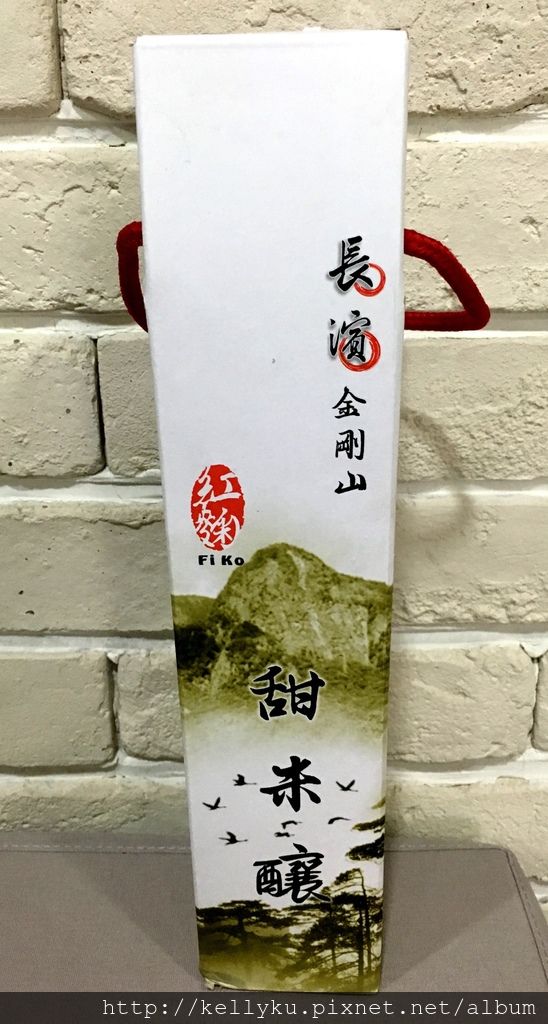 長濱
金剛山
紅麴
Fi Ko
甜米釀
http://kellyku.pixnet.net/album